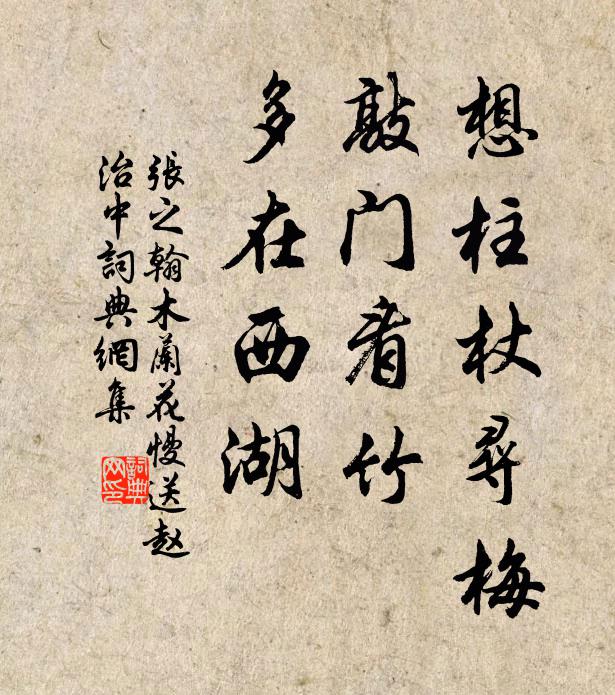 想柱杖尋梅
敲门看竹
多在西湖
張之翰木蘭花慢送赵
治中詞典網集
詞典
网印